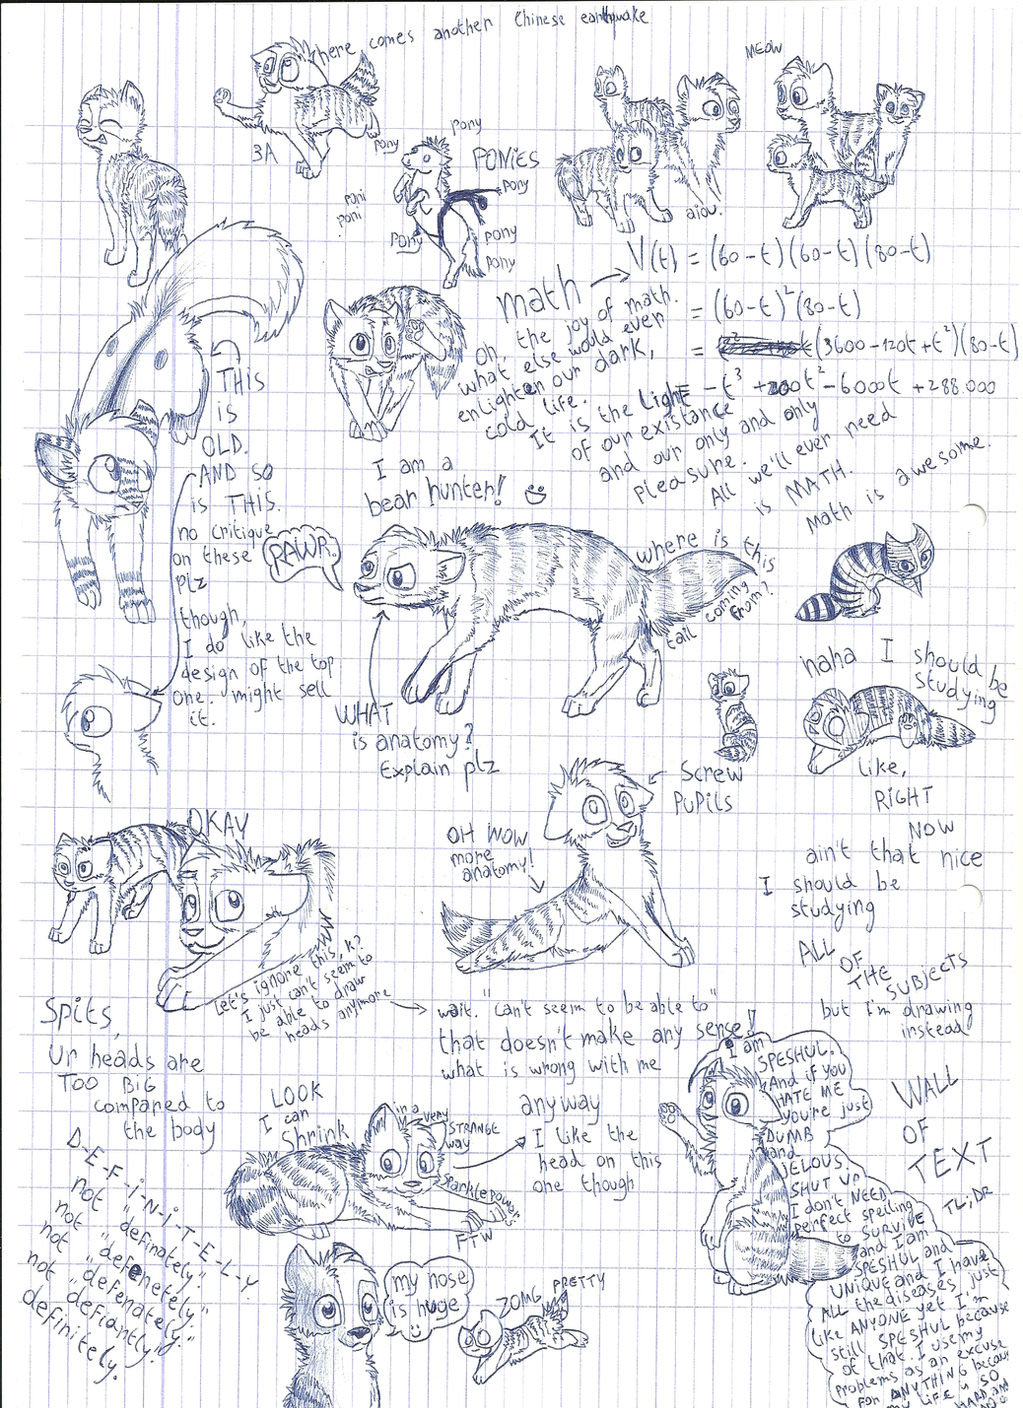 here comes another Chinese earthquake
MEOW
3A
pony
pony
PONIES
pony
poni
poni
pony
pony
pony
aiou.
math
V(t) = (60-t)(60-t)(80-t)
= (60-t)²(80-t)
= (3600-120t+t²)(80-t)
-t³ +200t² -6000t +288.000
oh, the joy of math.
what else would ever
enlighten our dark,
cold life.
It is the Light
of our existance
and our only and only
pleasure.
All we'll ever need
is MATH.
Math is awesome.
THIS
IS
OLD.
AND SO
is THIS.
no critique
on these
plz
though,
I do like the
design of the top
one. might sell
it.
I am a
bear hunter!
RAWR.
where is this
tail coming
from?
WHAT
is anatomy?
Explain plz
haha I should
be
studying
like,
RIGHT
NOW
ain't that nice
I should be
studying
ALL
OF
THE
SUBJECTS
but I'm drawing
instead
Screw
PUPILS
OH WOW
more
anatomy!
OKAY
Let's ignore this, k?
I just can't seem to
be able to draw
heads anymore
wait. "can't seem to be able to"
that doesn't make any sense!
what is wrong with me
Spits,
Ur heads are
TOO BIG
compared to
the body
D-E-F-i-N-i-T-E-L-Y.
not "definately."
not "defenetely."
not "defenately."
not "defiantly."
definitely.
LOOK
I can
Shrink
in a very
STRANGE
way
sparklepowers
FTW
anyway
I like the
head on this
one though
my nose
is huge
ZOMG
PRETTY
I am
SPESHUL.
And if you
HATE ME
you're just
DUMB
and
JELOUS.
SHUT UP
I don't NEED
perfect spelling
to SURVIVE
and I am
SPESHUL and
UNIQUE and I have
ALL the diseases just
like ANYONE yet I'm
still SPESHUL because
of that. I use my
problems as an excuse
FOR ANYTHING because
my LIFE is SO
HARD and
WALL
OF
TEXT
TL;DR